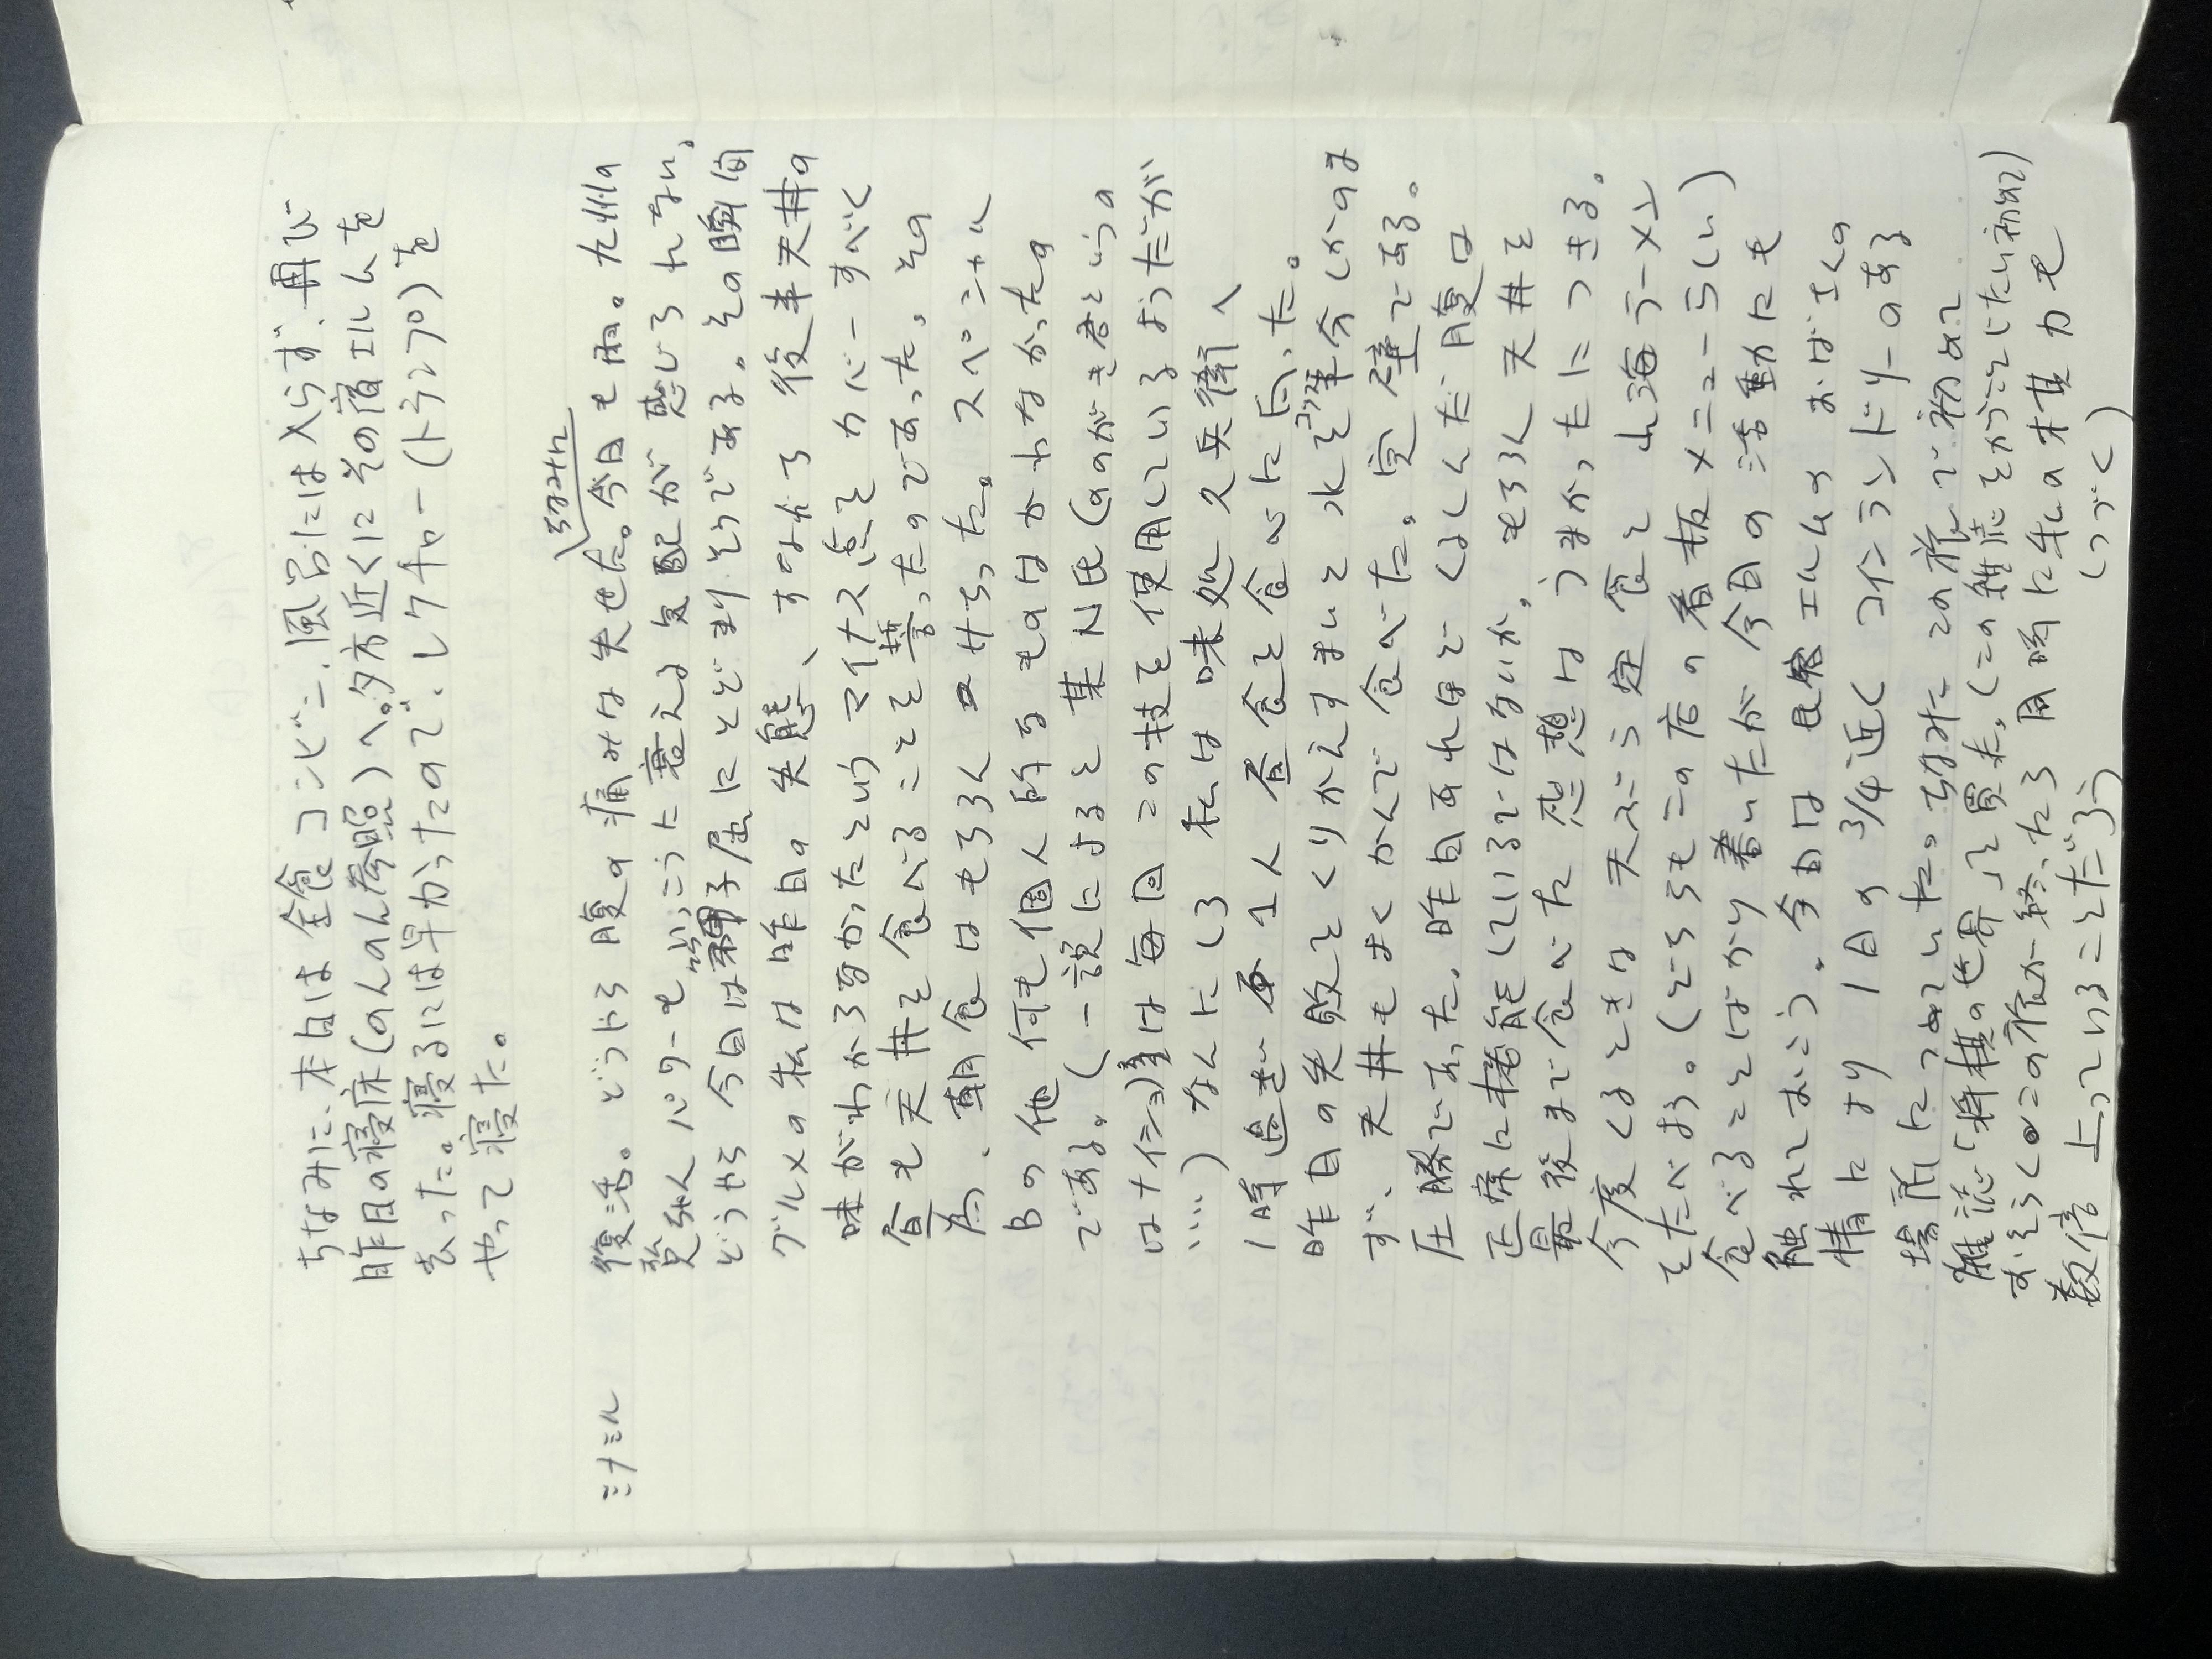 ちなみに、本日は全食コンビニ、風呂には入らず、再び
昨日の寝床(のんのん参照)へ。夕方近くにその宿エルムを
去った。寝るには早かったので、レクチャー(トランプ)を
やって寝た。
ちなみに
ミナミル 復活。どうやら腹の痛みは失せた。今日も雨。九州の
梅雨パワーも いっこうに衰える気配が感じられない。
どうやら今日は弟子屈にとどまりそうである。その瞬間
グルメの私は昨日の失態、すなわち後半天丼の
味がわからなかったというマイナス点をカバーすべく
昼も天丼を食べることを誓ったのであった。その
為、朝食はもちろんコッペ スペシャル
Bの他何も個人的なものはかわなかったの
である。(一説によると某N氏(のがき君というの
はナイショ)は毎回この技を使用しているようだが
‥‥) なんにしろ 私は味処久兵衛へ
1時過ぎ 1人昼食を食べに向った。
昨日の失敗をくりかえすまいと水を半分しかのま
ず、天丼もよくかんで食べた。完璧である。
圧勝であった。昨日あれほどくるしんだ腹は
正常に機能しているではないか。もちろん天丼を
最後まで食べた感想はうまかったにつきる。
今度くるときは天ぷら定食と山海ラーメン
をたべよう。(どちらもこの店の看板メニューらしい)
食べることばかり書いたが今日の活動にも
触れておこう。今日は民宿エルムのおばさんの
情により1日の3/4近くコインランドリーのある
場所につめていた。ちなみにこの旅で初めて
雑誌「将棋の世界」を買った。(この雑誌をかうことじたい初めて)
おそらくこの旅が終ったら同時に私の棋力も
数倍上っていることだろう (つづく)